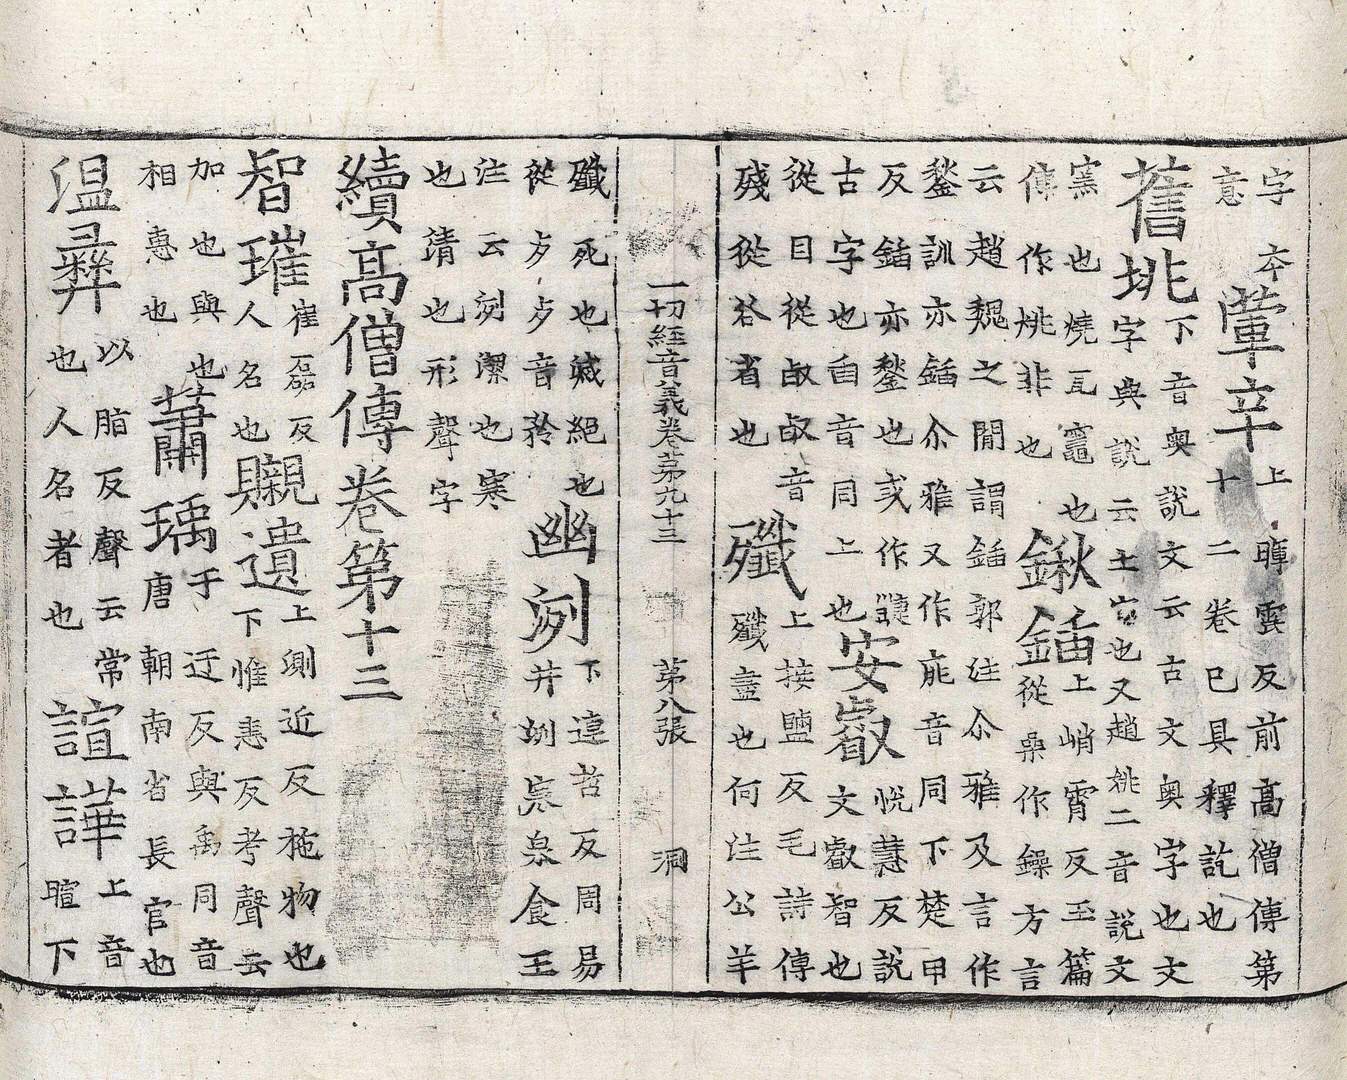 字本
意
葷辛
上暉雲反前高僧傳第
十二卷已具釋訖也
舊垗
下音奧說文云古文奧字也文
字典說云土穴也又趙姚二音說文
窯也燒瓦竈也
傳作姚非也
鍬鍤
上峭霄反玉篇
從喿作鐰方言
云趙魏之間謂鍤郭注尒雅及言作
鍫訓亦鍤尒雅又作㡿音同下楚甲
反鍤亦鍫也或作
古字也臿音同上也
安叡
悅慧反說
文叡智也
從目從㕡㕡音
殘從谷省也
殲
上接鹽反毛詩傳
殲盡也何注公羊
一切經音義卷第九十三 第八張 洞
殲死也滅絕也
從歹歹音矜
幽洌
下連哲反周易
井洌寒泉食王
注云洌潔也寒
也清也形聲字
續高僧傳卷第十三
智璀
崔磊反
人名也
䞋遺
上測近反拖物也
下惟恚反考聲云
加也與也
相惠也
蕳瑀
于迂反與禹同音
唐朝南省長官也
溫彝
以脂反聲云常
也人名者也
諠譁
上音
暄下